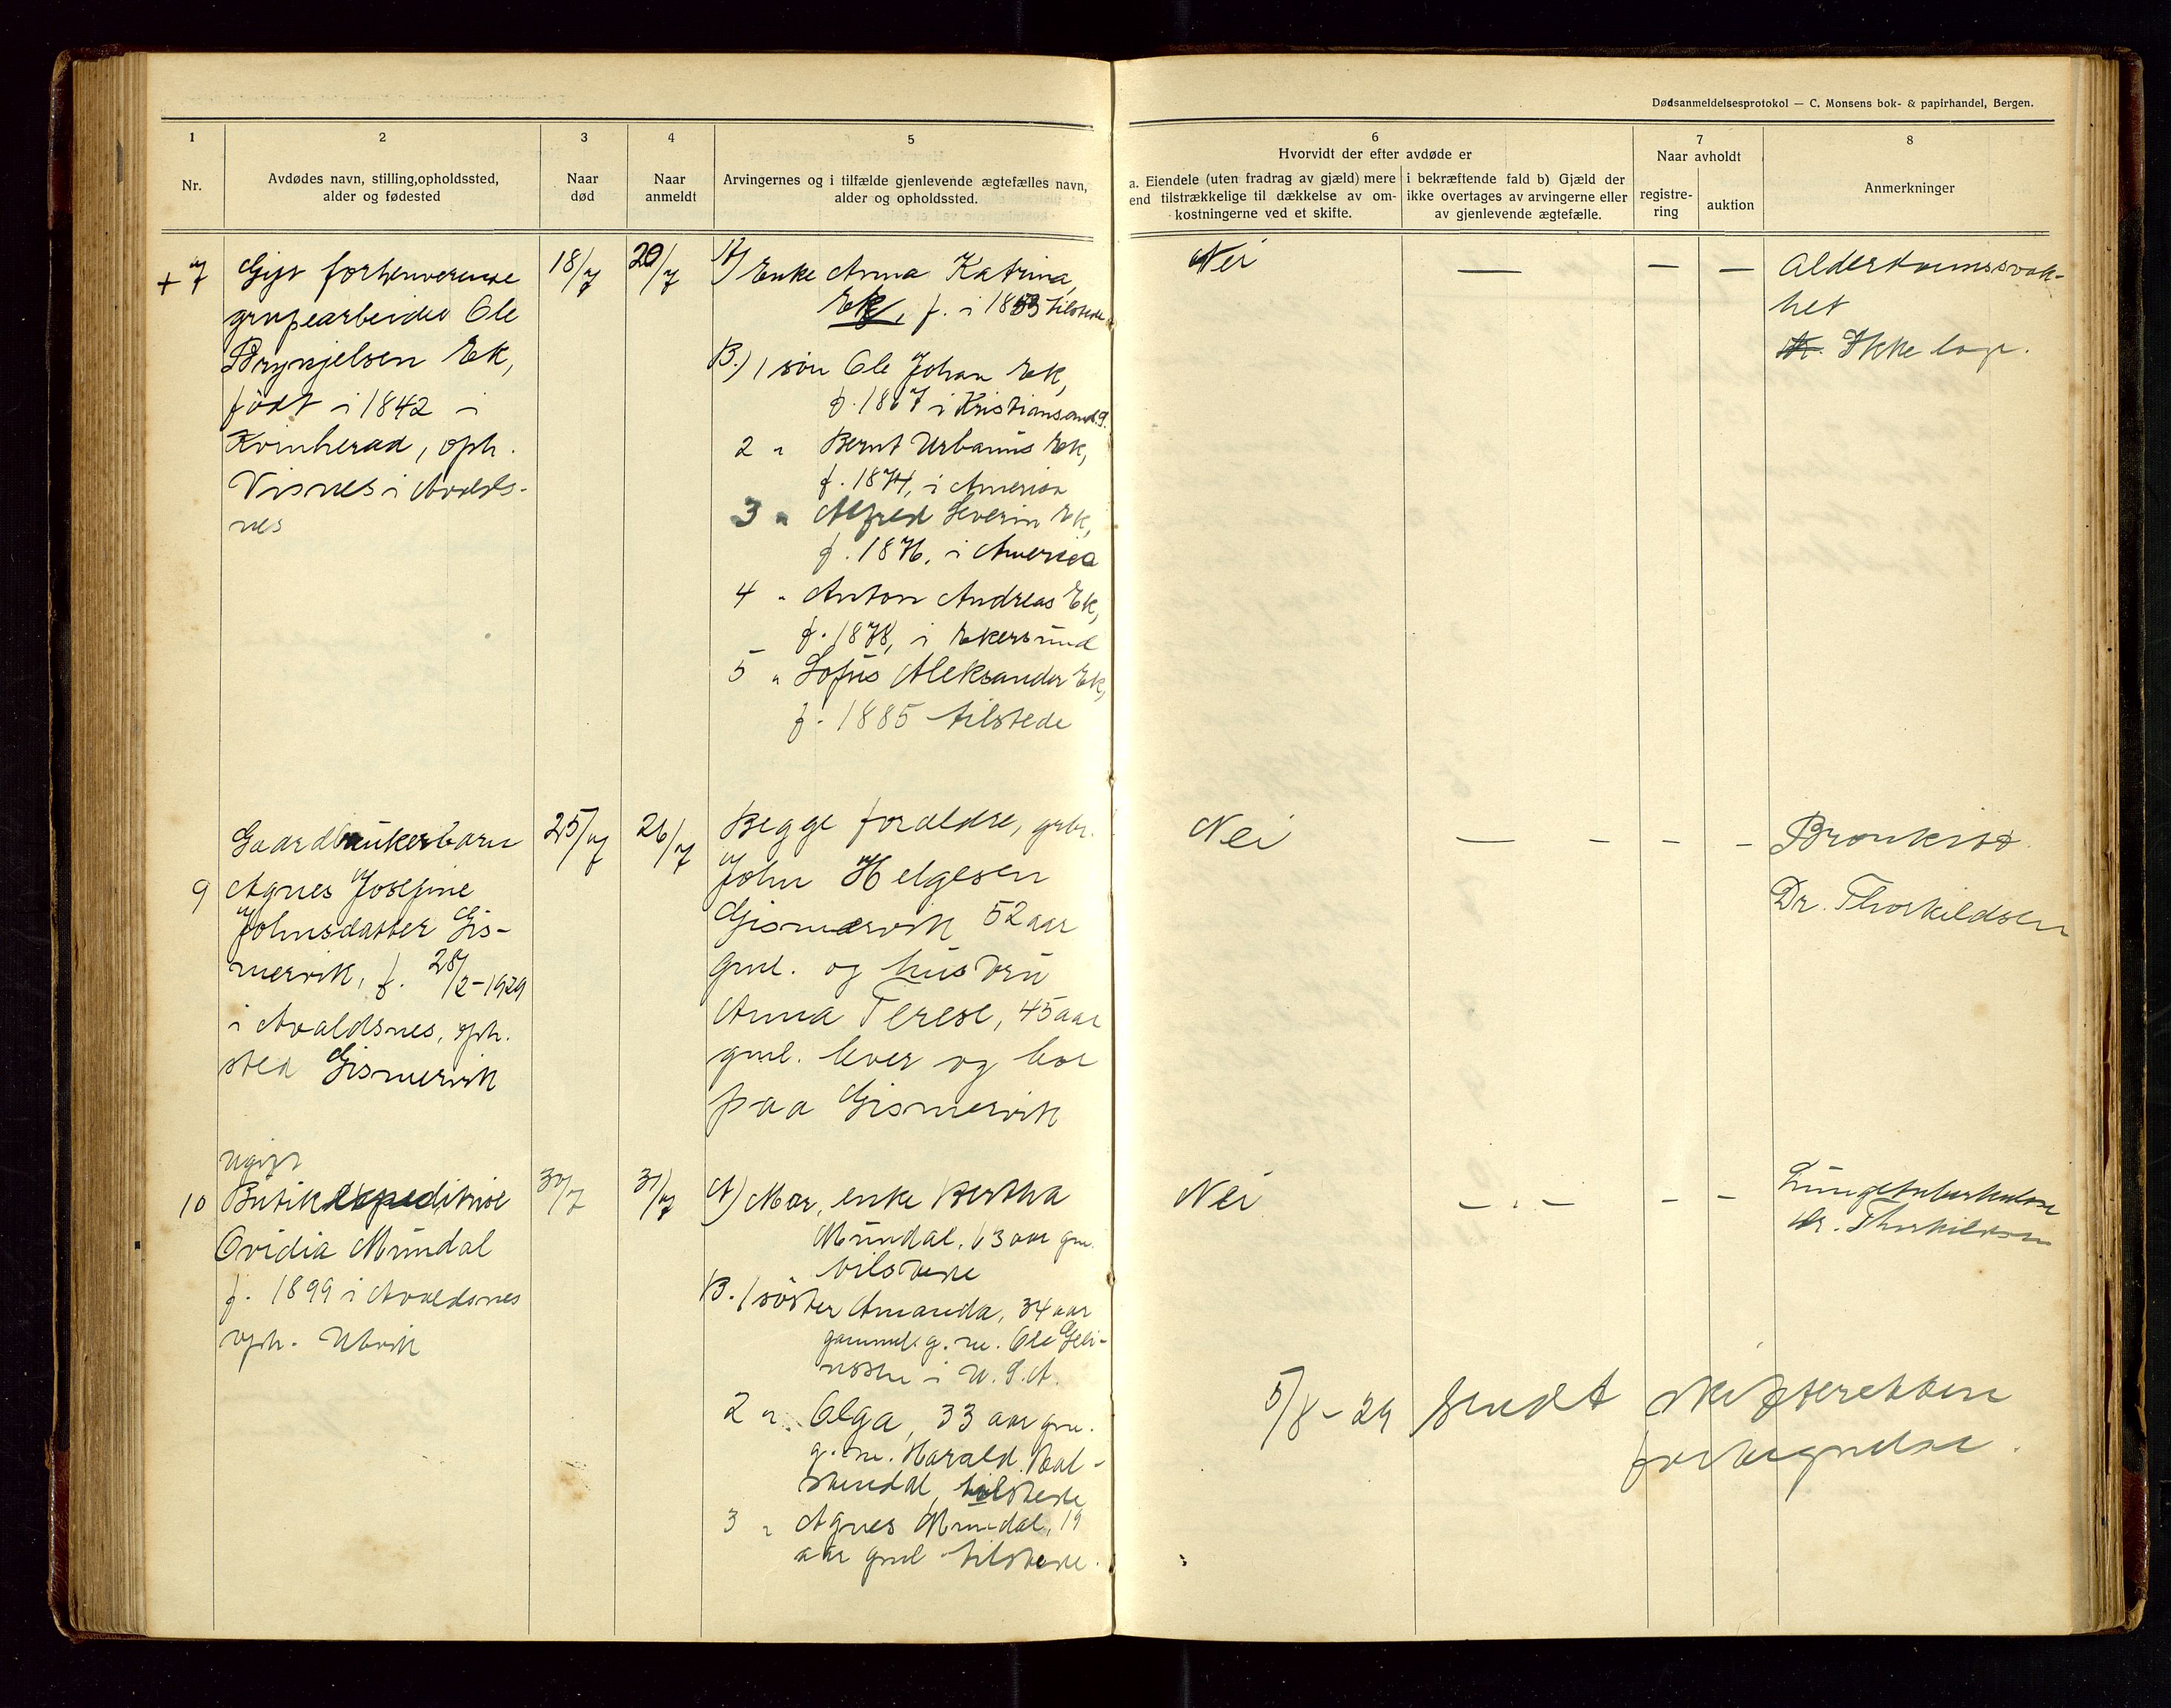 Dødsanmeldelsesprotokol — C. Monsens bok- & papirhandel, Bergen.
1
Nr.
2
Avdødes navn, stilling,opholdssted,
alder og fødested
3
Naar
død
4
Naar
anmeldt
5
Arvingernes og i tilfælde gjenlevende ægtefælles navn,
alder og opholdssted.
6
Hvorvidt der efter avdøde er
a. Eiendele (uten fradrag av gjæld) mere
end tilstrækkelige til dækkelse av om-
kostningerne ved et skifte.
i bekræftende fald b) Gjæld der
ikke overtages av arvingerne eller
av gjenlevende ægtefælle.
7
Naar avholdt
registre-
ring
auktion
8
Anmerkninger
+ 7
Gift forhenverende
grupearbeider Ole
Brynjelsen Ek,
født i 1842 i
Kvinherad, oph.
Visnes i Avalds-
nes
18/7
20/7
A) Enke Anna Katrina
Ek, f. i 1853 tilstede
B.) 1 søn Ole Johan Ek,
f. 1867 i Kristiansand S.
2 " Bernt Urbanus Ek,
f. 1874, i Amerika
3 " Alfred Severin Ek,
f. 1876, i America
4 " Anton Andreas Ek,
f. 1878, i Ekersund
5 " Sofus Aleksander Ek,
f. 1885 tilstede
Nei
—
—
—
Alderdomssvak-
het
Ikke læge.
9
Gaardbrukerbarn
Agnes Josefine
Johnsdatter Gis-
mervik, f. 28/2-1929
i Avaldsnes, oph.
sted Gismervik
25/7
26/7
Begge forældre, grbr.
John Helgesen
Gismervik 52 aar
gml. og hustru
Anna Terese, 45 aar
gml. lever og bor
paa Gismervik
Nei
— -
-
-
Bronkitt
Dr. Thorkildsen
10
Ugift
Butikekspeditrice
Ovidia Mundal
f. 1899 i Avaldsnes
oph. Utvik
30/7
31/7
A) Mor, enke Bertha
Mundal, 63 aar gm.
tilstede
B. 1 søster Amanda, 34 aar
gammel g. m. Ole
i U.S.A.
2 " Olga, 33 aar gm.
g. m. Harald
tilstede
3 " Agnes Mundal, 19
aar gml tilstede.
Nei
- . -
-
-
Lungetuberkulose
dr. Thorkildsen
5/8-29 Sendt skifteretten
fortegnelse.